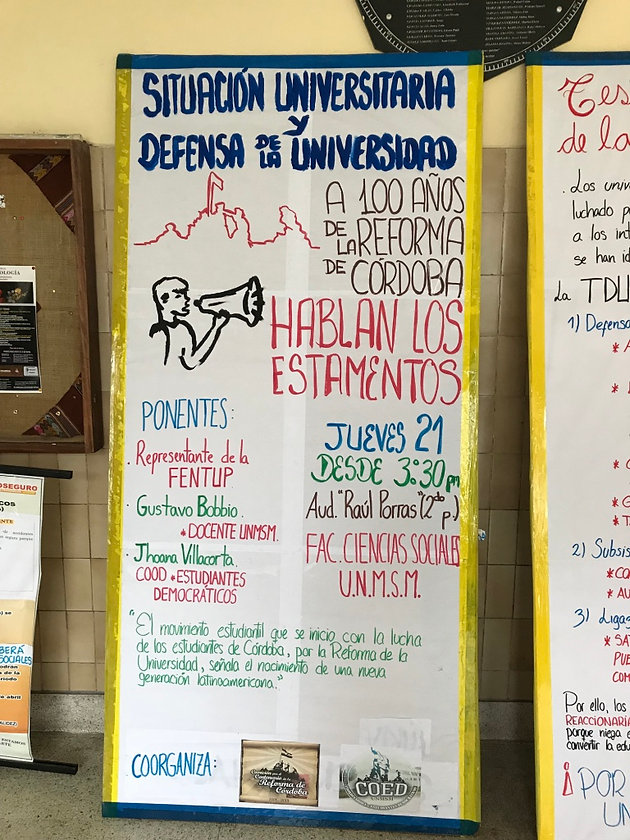 SITUACIÓN UNIVERSITARIA
Y
DEFENSA DE LA UNIVERSIDAD
A 100 AÑOS
DE
LA REFORMA
DE CÓRDOBA
HABLAN LOS
ESTAMENTOS
PONENTES:
. Representante de la
FENTUP
. Gustavo Bobbio.
* DOCENTE UNMSM.
. Jhoana Villacorta.
COOD * ESTUDIANTES
DEMOCRÁTICOS
JUEVES 21
DESDE 3:30 pm
Aud. "Raúl Porras" (2do p.)
FAC. CIENCIAS SOCIALES
U.N.M.S.M.
"El movimiento estudiantil que se inicio con la lucha
de los estudiantes de Córdoba, por la Reforma de la
Universidad, señala el nacimiento de una nueva
generación latinoamericana."
COORGANIZA:
Centenario de la
Reforma de
Córdoba
COED
UNMSM
Tes
de la
. Los univ
luchado p
a los int
se han id
La TDU
1) Defensa
2) Subsis
* CO
* AU
3) Ligaç
* SA
PUE
COM
Por ello, los
REACCIONARIA
porque niega e
convertir la edu
¡POR
UN
OLOGÍA
OSEGURO
BERÁ
SOCIALES
abril
VALIDEZ